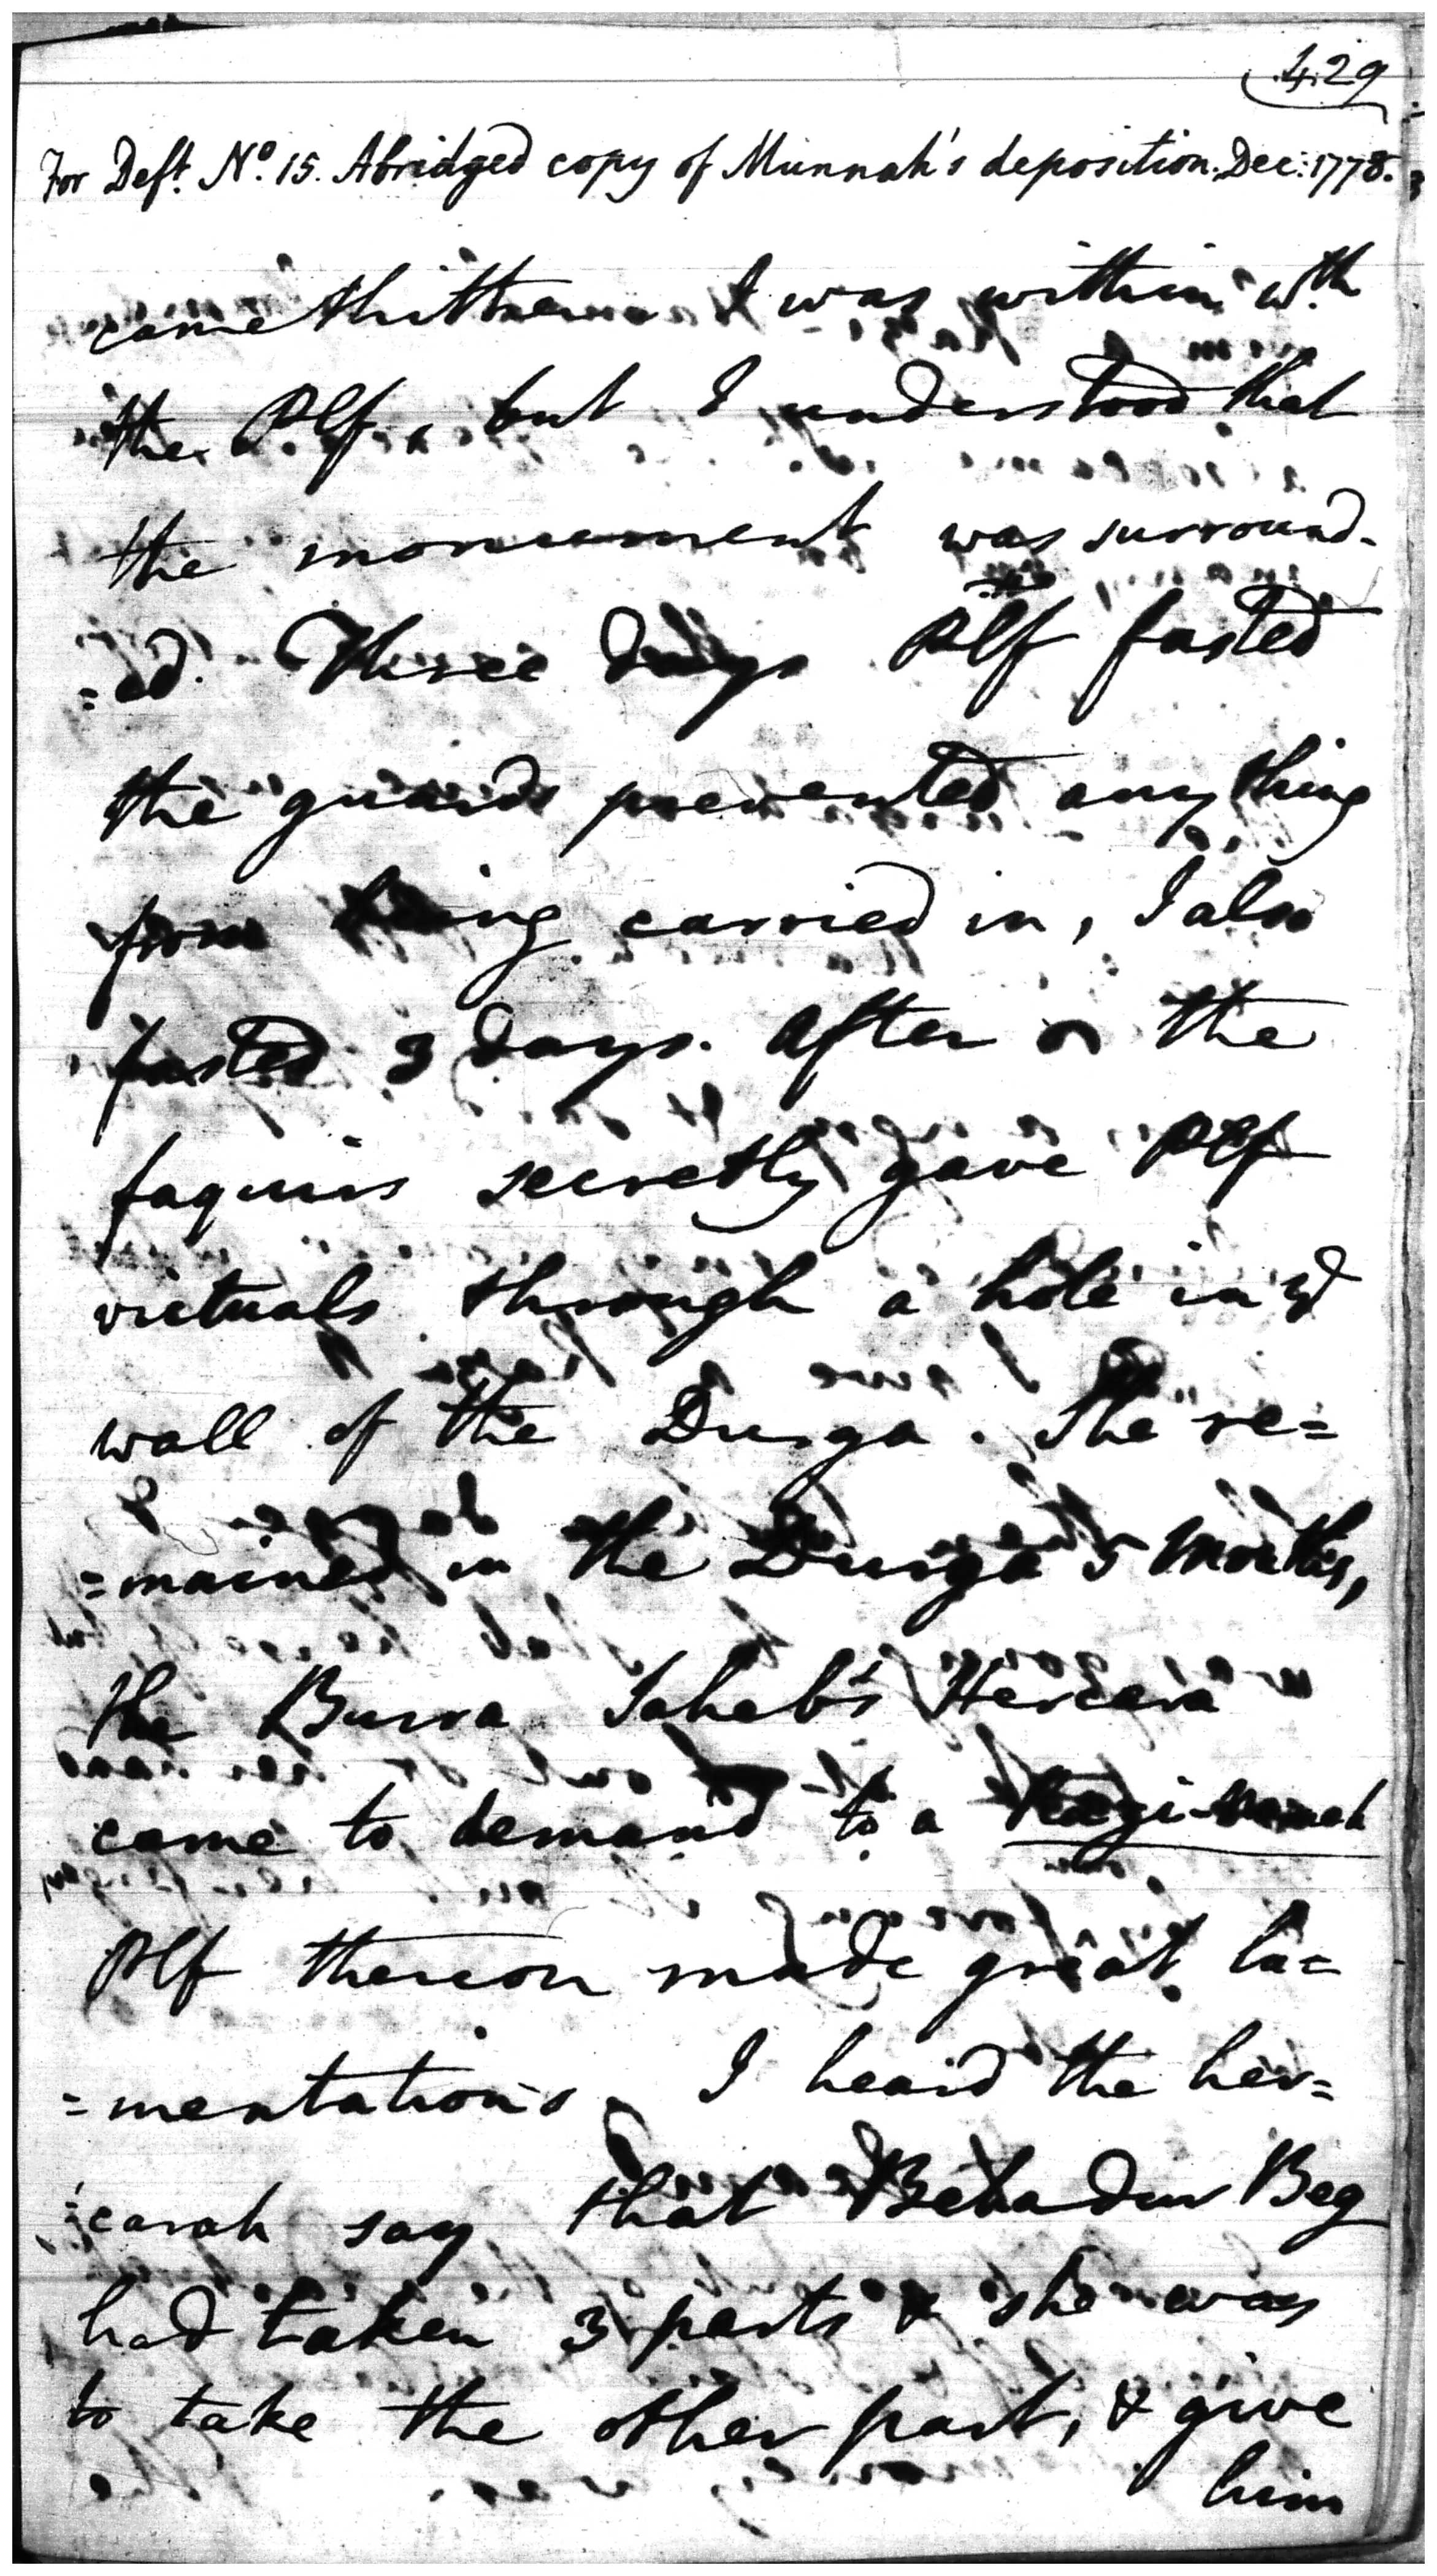 429
For Deft. No. 15. Abridged copy of Munnah's deposition. Dec: 1778.
came thither I was within wth
the Plf, but I understood that
the monument was surround-
=ed. Three days Plf fasted
the guards prevented any thing
from being carried in, I also
fasted 3 days. After the
faquirs secretly gave Plf
victuals through a hole in ye
wall of the Durga. She re=
=mained in the Durga 5 months,
the Burra Saheb's Hercara
came to demand a Razi-nameh
Plf thereon made great la=
=mentations. I heard the her=
=carah say that Behadur Beg
had taken 3 parts & she was
to take the other part, & give
him